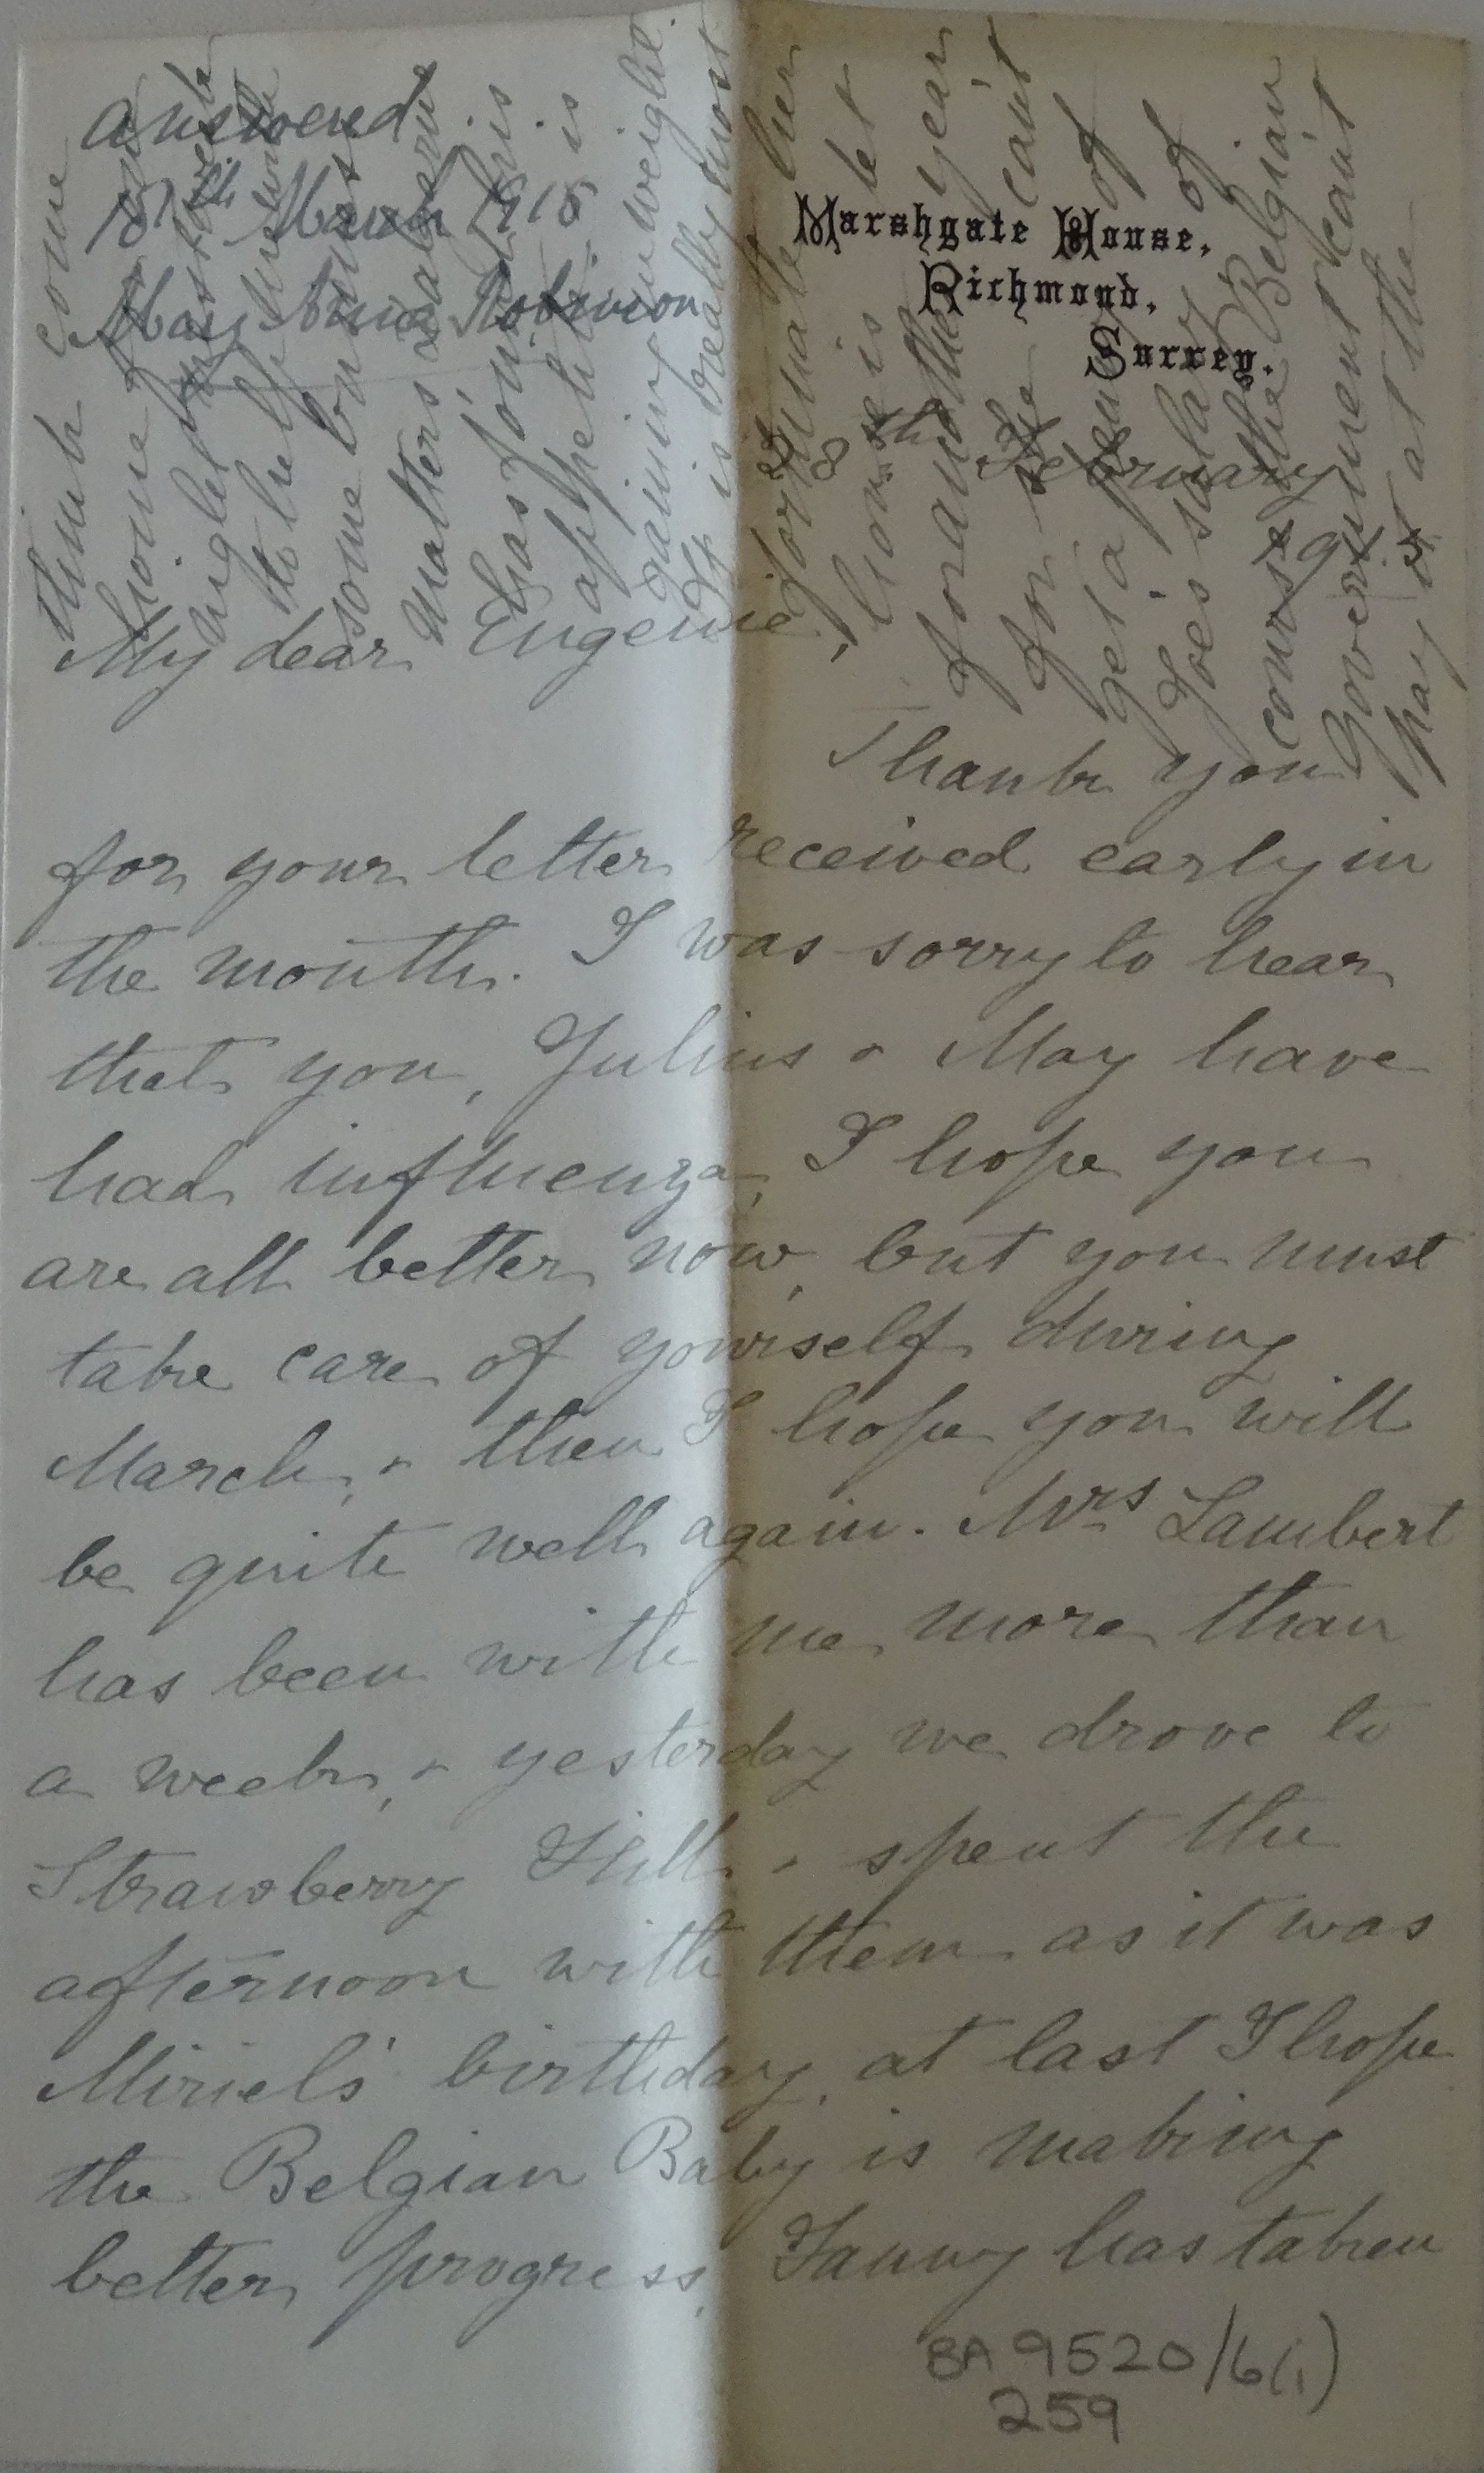 Answered
18th March 1915
May Anna Robinson
Marshgate House,
Richmond,
Surrey.
28th February
My dear Eugenie,
Thank you
for your letter received early in
the month. I was sorry to hear
that you, Julius & May have
had influenza, I hope you
are all better now, but you must
take care of yourself during
March, & then I hope you will
be quite well again. Mrs Lambert
has been with me more than
a week, & yesterday we drove to
Strawberry Hill & spent the
afternoon with them as it was
Miriel's birthday, at last I hope
the Belgian Baby is making
better progress, Fanny has taken
BA 9520/6(i)
259
think
come
home
night
to help
some
matters
has found his
appetite & is
gaining in weight.
It is really most
fortunate her
house is let
for another year
for she can't
get a penny of
Joe's salary of
course the Belgian
government can't
pay it at the